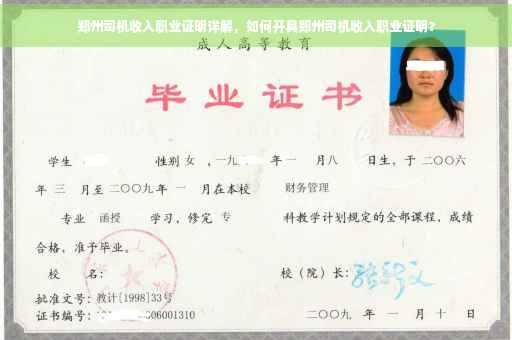 郑州司机收入职业证明详解，如何开具郑州司机收入职业证明？
成人高等教育
毕业证书
学生 性别 女 ，一九 年一 月八 日生，于二〇〇六
年 三 月至二〇〇九年 一 月在本校 财务管理
专业 函授 学习，修完 专 科教学计划规定的全部课程，成绩
合格，准予毕业。
校 名： 校（院）长：
批准文号：教计[1998]33号
证书编号： 06001310 二〇〇九 年 一 月 十 日